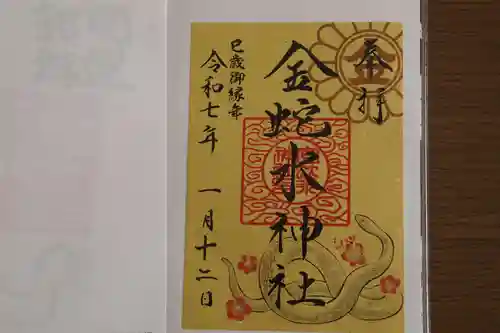 奉拝
金
金蛇水神社
巳歳御縁年
令和七年 一月十二日